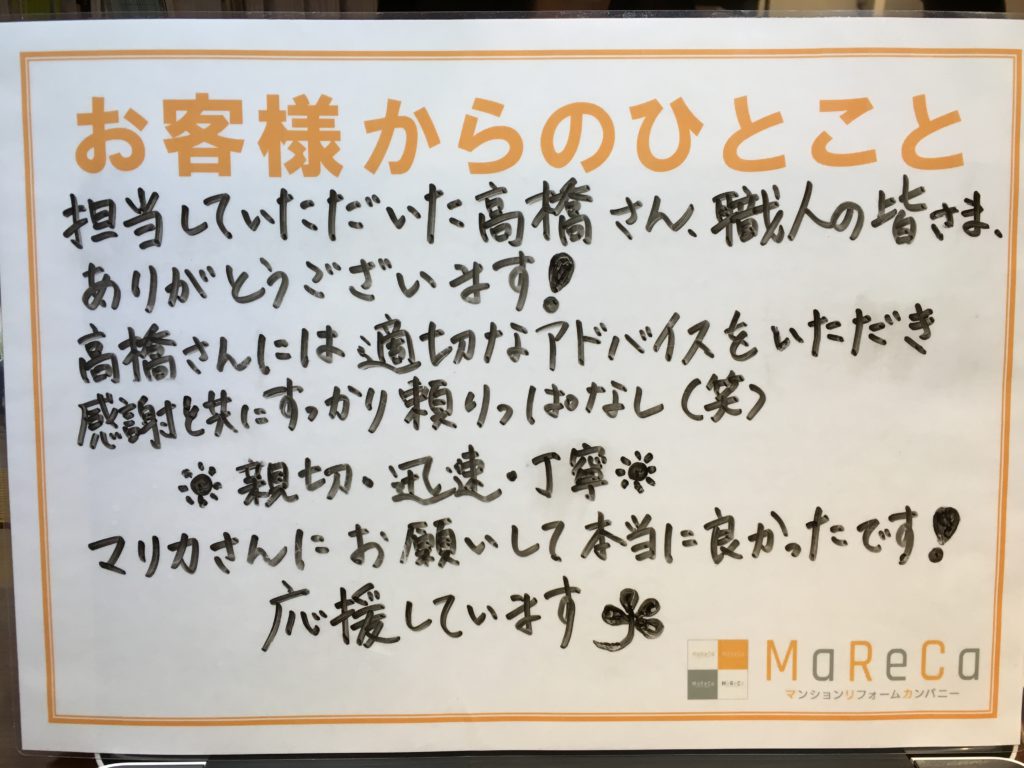 お客様からのひとこと
担当していただいた高橋さん、職人の皆さま、
ありがとうございます!
高橋さんには適切なアドバイスをいただき
感謝と共にすっかり頼りっぱなし(笑)
親切・迅速・丁寧
マリカさんにお願いして本当に良かったです!
応援しています
MaReCa
マンションリフォームカンパニー